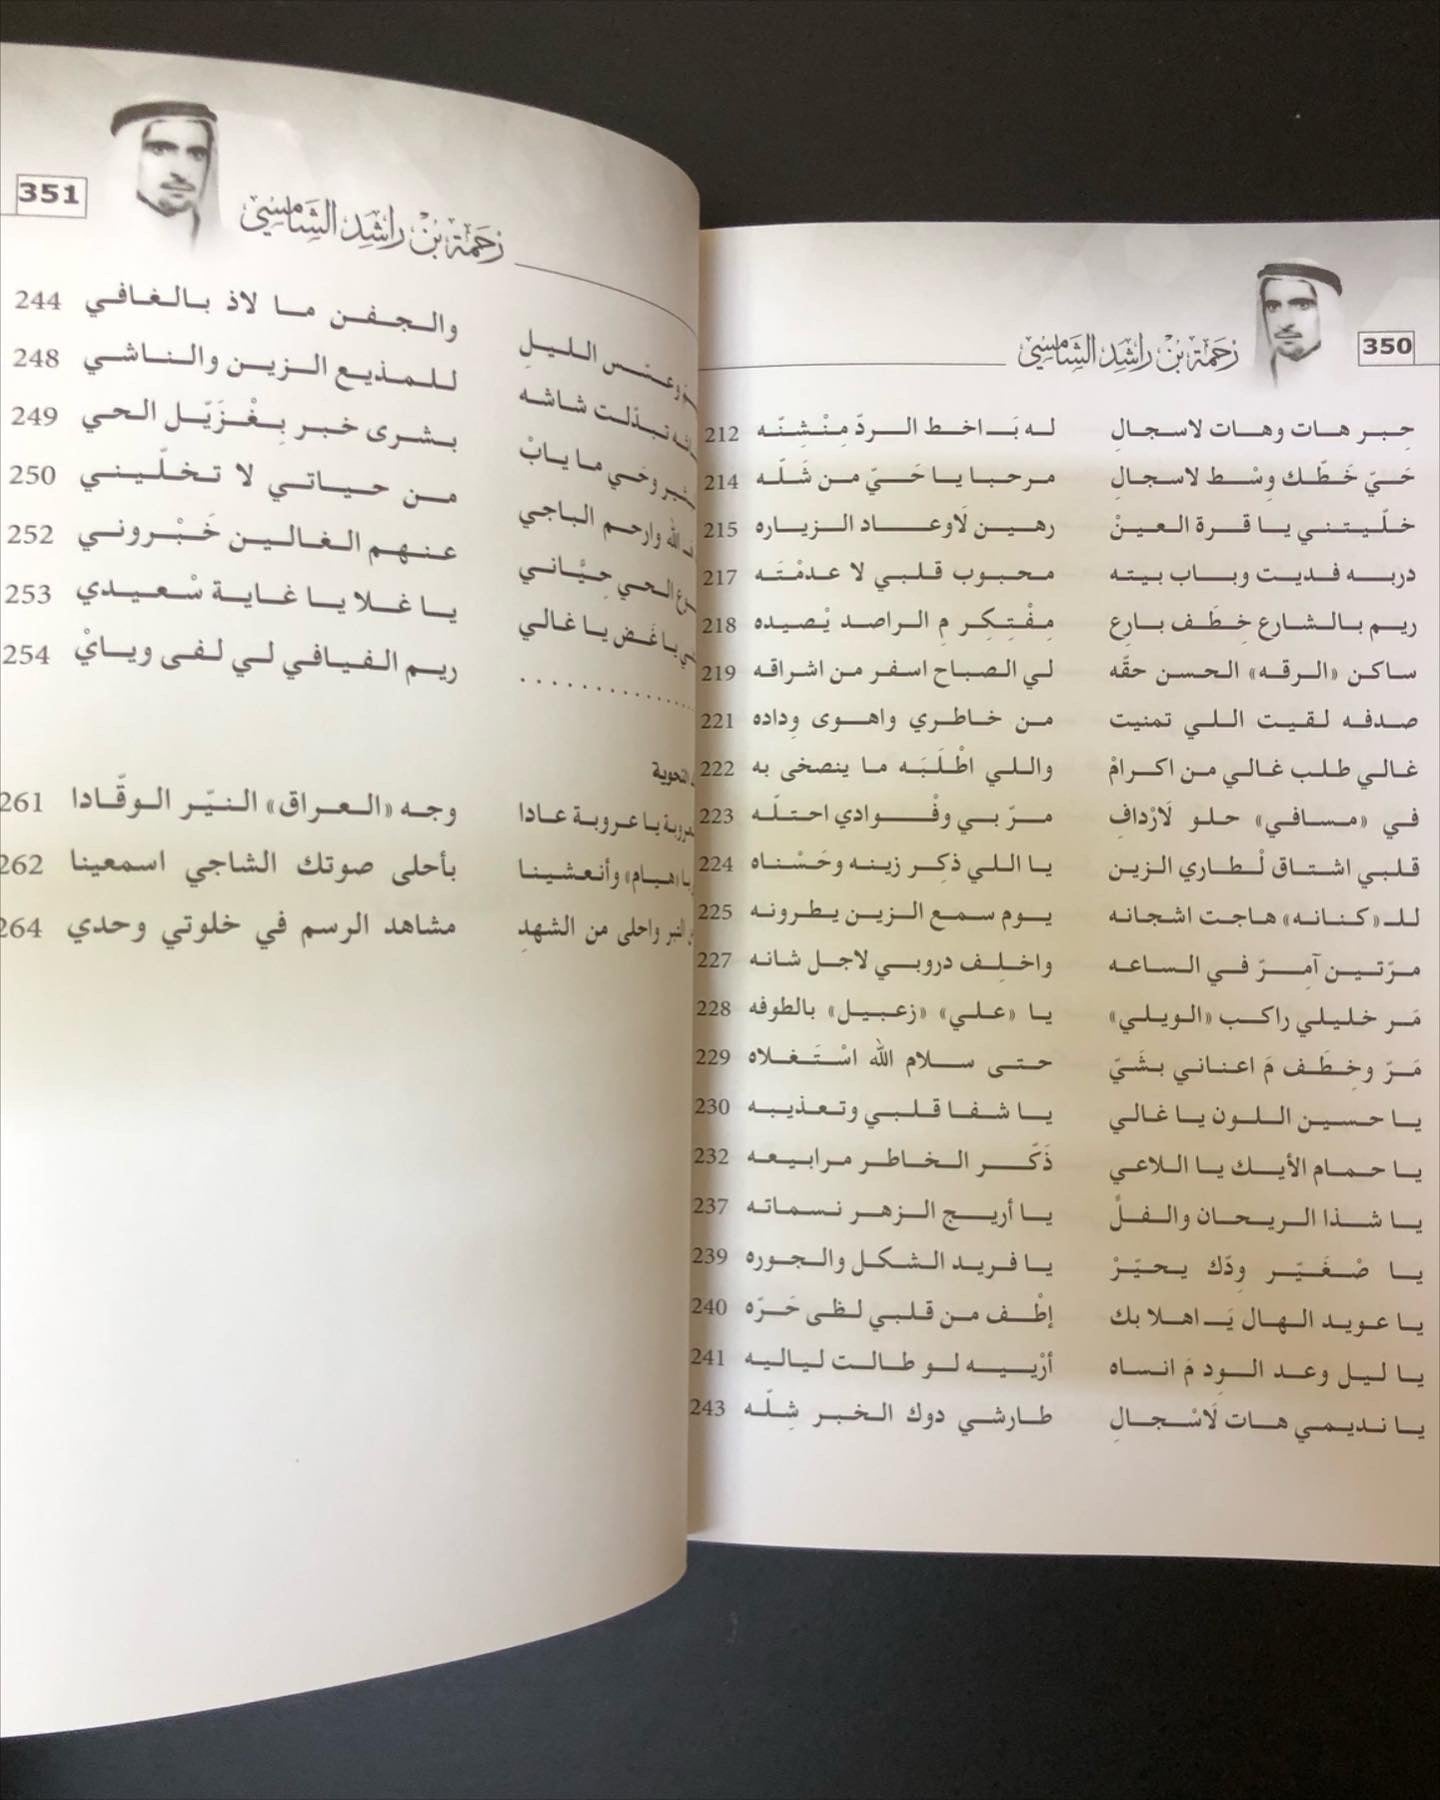 350
رحمة بن راشد الشامسي
حِبر هات وهات لاسجالِ له بَـاخط الردّ مِنْشِنّه 212
حَيّ خَطّك وِسْط لاسجالِ مرحبا يا حَيّ من شَلّه 214
خلّيتني يا قرة العينْ رهين لَاوعاد الزياره 215
دربه فديت وباب بيته محبوب قلبي لا عدمْتَه 217
ريم بالشارع خِطَف بارِع مِفْتِكِر مِ الراصد يْصيده 218
ساكن «الرقه» الحسن حقّه لي الصباح اسفر من اشراقه 219
صدفه لقيت اللي تمنيت من خاطري واهوى وِداده 221
غالي طلب غالي من اكرامْ واللي اطْلَبَه ما ينصخى به 222
في «مسافي» حلو لَارْدافِ مرّ بي وفْوادي احتلّه 223
قلبي اشتاق لْطاري الزين يا اللي ذكِر زينه وحَسْناه 224
للـ«كنانه» هاجت اشجانه يوم سمع الزين يطرونه 225
مرّتين آمِرّ في الساعه واخلِف دروبي لاجل شانه 227
مَر خليلي راكب «الويلي» يا «علي» «زعبيل» بالطوفه 228
مَرّ وخِطَف مَ اعناني بشَيّ حتى سلام الله اسْتَغلاه 229
يا حسين اللون يا غالي يا شفا قلبي وتعذيبه 230
يا حمام الأيك يا اللاعي ذَكّر الخاطر مرابيعه 232
يا شذا الريحان والفلّ يا أريج الزهر نسماته 237
يا صْغَيّر وِدّك يحيّرْ يا فريد الشكل والجوره 239
يا عويد الهال يَـاهلا بك إطْف من قلبي لظى حَرّه 240
يا ليل وعد الوِد مَ انساه أرْبيه لو طالت لياليه 241
يا نديمي هات لَاسْجالِ طارشي دوك الخبر شِلّه 243
351
رحمة بن راشد الشامسي
وعسّس الليلِ والجفن ما لاذ بالغافي 244
تبدّلت شاشه للمذيع الزين والناشي 248
وحَي ما يابْ بشرى خبر بِغْزَيّل الحي 249
الله وارحم الباجي من حياتي لا تخلّيني 250
الحي حِيّاني عنهم الغالين خَبْروني 252
يا غَض يا غالي يا غلا يا غاية سْعيدي 253
. . . . . . . . . . . . . ريم الفيافي لي لفى ويايْ 254
يا عروبة عادا وجه «العراق» النيّر الوقّادا 261
«هيام» وأنعشينا بأحلى صوتك الشاجي اسمعينا 262
واحلى من الشهدِ مشاهد الرسم في خلوتي وحدي 264